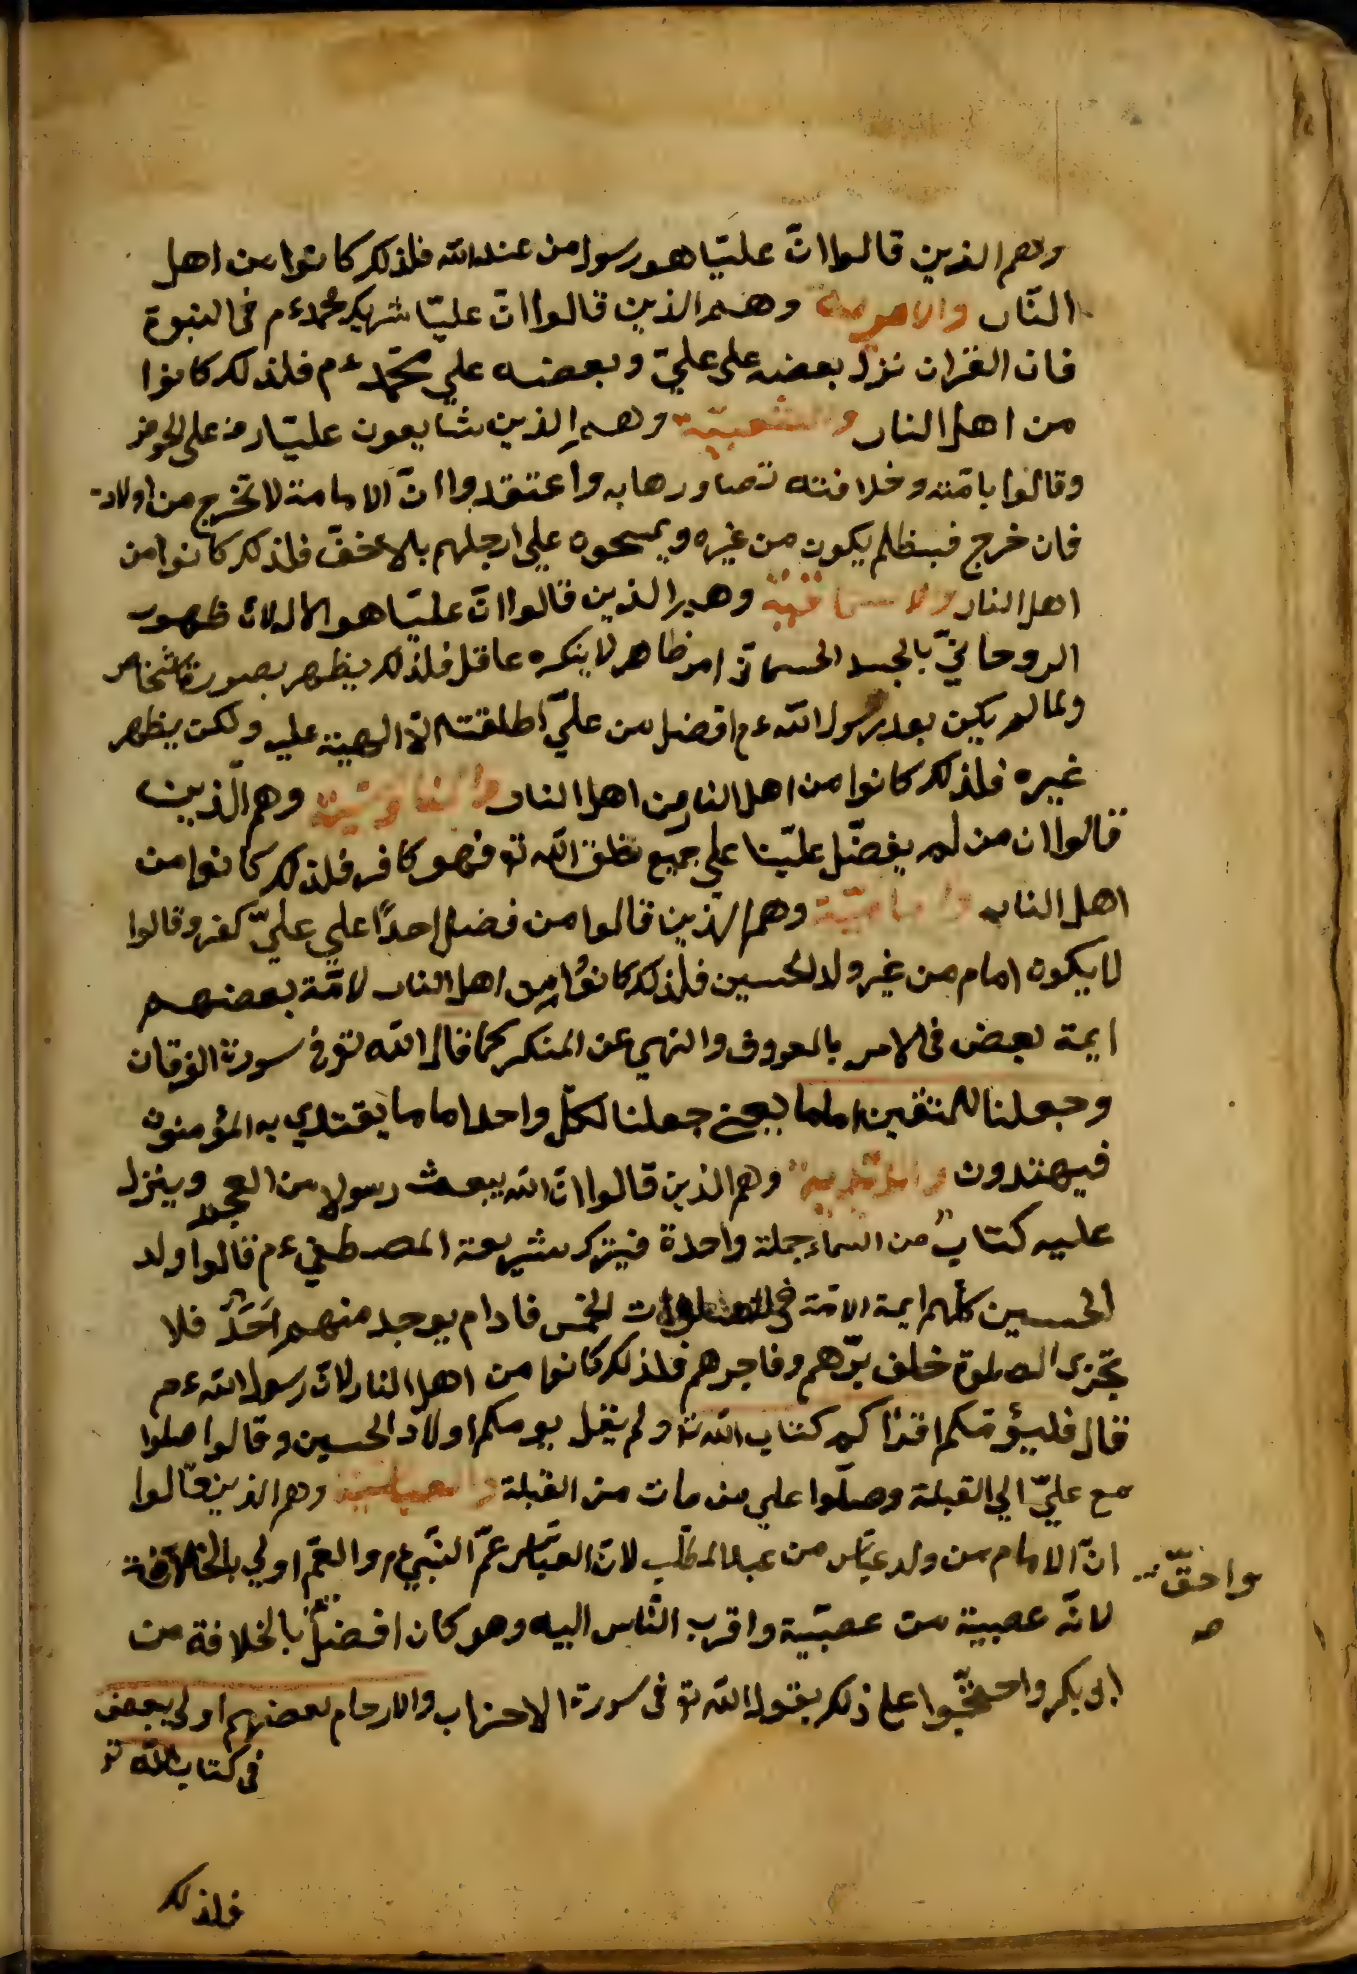 وهم الذين قالوا انّ عليّا هو رسول من عند الله فلذلك كانوا من اهل
النّار والامرية وهم الذين قالوا انّ عليّا شريك محمد ءم فى النبوة
فان القران نزل بعضه على عليّ وبعضه علي محمّد ءم فلذلك كانوا
من اهل النار والشعبيّة وهم الذين شايعون عليّا رض على
وقالوا بامّته وخلافته واعتقدوا انّ الامامة لا تخرج من اولاده
فان خرج فبظلم يكون من غيره ويمسحون علي ارجلهم بلا خفّ فلذلك كانوا من
اهل النار والاسحاقية وهم الذين قالوا انّ عليّا هو الاله لانّ ظهور
الروحانيّ بالجسد الجسمانى امر ظاهر لا ينكره عاقل فلذلك يظهر بصورة اشخاص
ولما لم يكن بعد رسول الله ءم افضل من عليّ اطلقت الالهية عليه ولكن يظهر
غيره فلذلك كانوا من اهل النار من اهل النار والناوسيّة وهم الّذين
قالوا ان من لم يفضّل عليّا علي جميع خلق الله تع فهو كافر فلذلك كانوا من
اهل النار والاماميّة وهم الّذين قالوا من فضل احدًا علي عليّ كفر وقالوا
لا يكون امام من غير ولد الحسين فلذلك كانوا من اهل النار لامّة بعضهم
ايمة لبعض فى الامر بالمعروف والنهي عن المنكر كما قال الله تع فى سورة الفرقان
وجعلنا للمتقين اماما يعنى جعلنا لكلّ واحد اماما يقتدي به المؤمنون
فيهتدون واليزيدية وهم الذين قالوا انّ الله يبعث رسولا من العجم وينزل
عليه كتاب من السماء جملة واحدة فيترك شريعة المصطفي ءم قالوا ولد
الحسين كلّهم ايمة الامّة فى الصلوات الخمس فما دام يوجد منهم احَدٌ فلا
تجزى الصلوة خلف برّهم وفاجرهم فلذلك كانوا من اهل النار لانّ رسول الله ءم
قال فليؤمّكم اقرأكم كتاب الله تع ولم يقل يومكم اولاد الحسين وقالوا صلوا
مع عليّ الي القبلة وصلّوا علي من مات من القبلة والعباسيّة وهم الذين قالوا
انّ الامام من ولد عبّاس من عبد المطّلب لانّ العبّاس عمّ النّبي ءم والعمّ اولي بالخلافة
واحقّ
صه
لانّه عصبية من عصبيّة واقرب النّاس اليه وهو كان افضل بالخلافة من
ابى بكر واحتجّوا على ذلك بقول الله تع فى سورة الاحزاب والارحام بعضهم اولى ببعض
فى كتاب الله تع
فلذلك